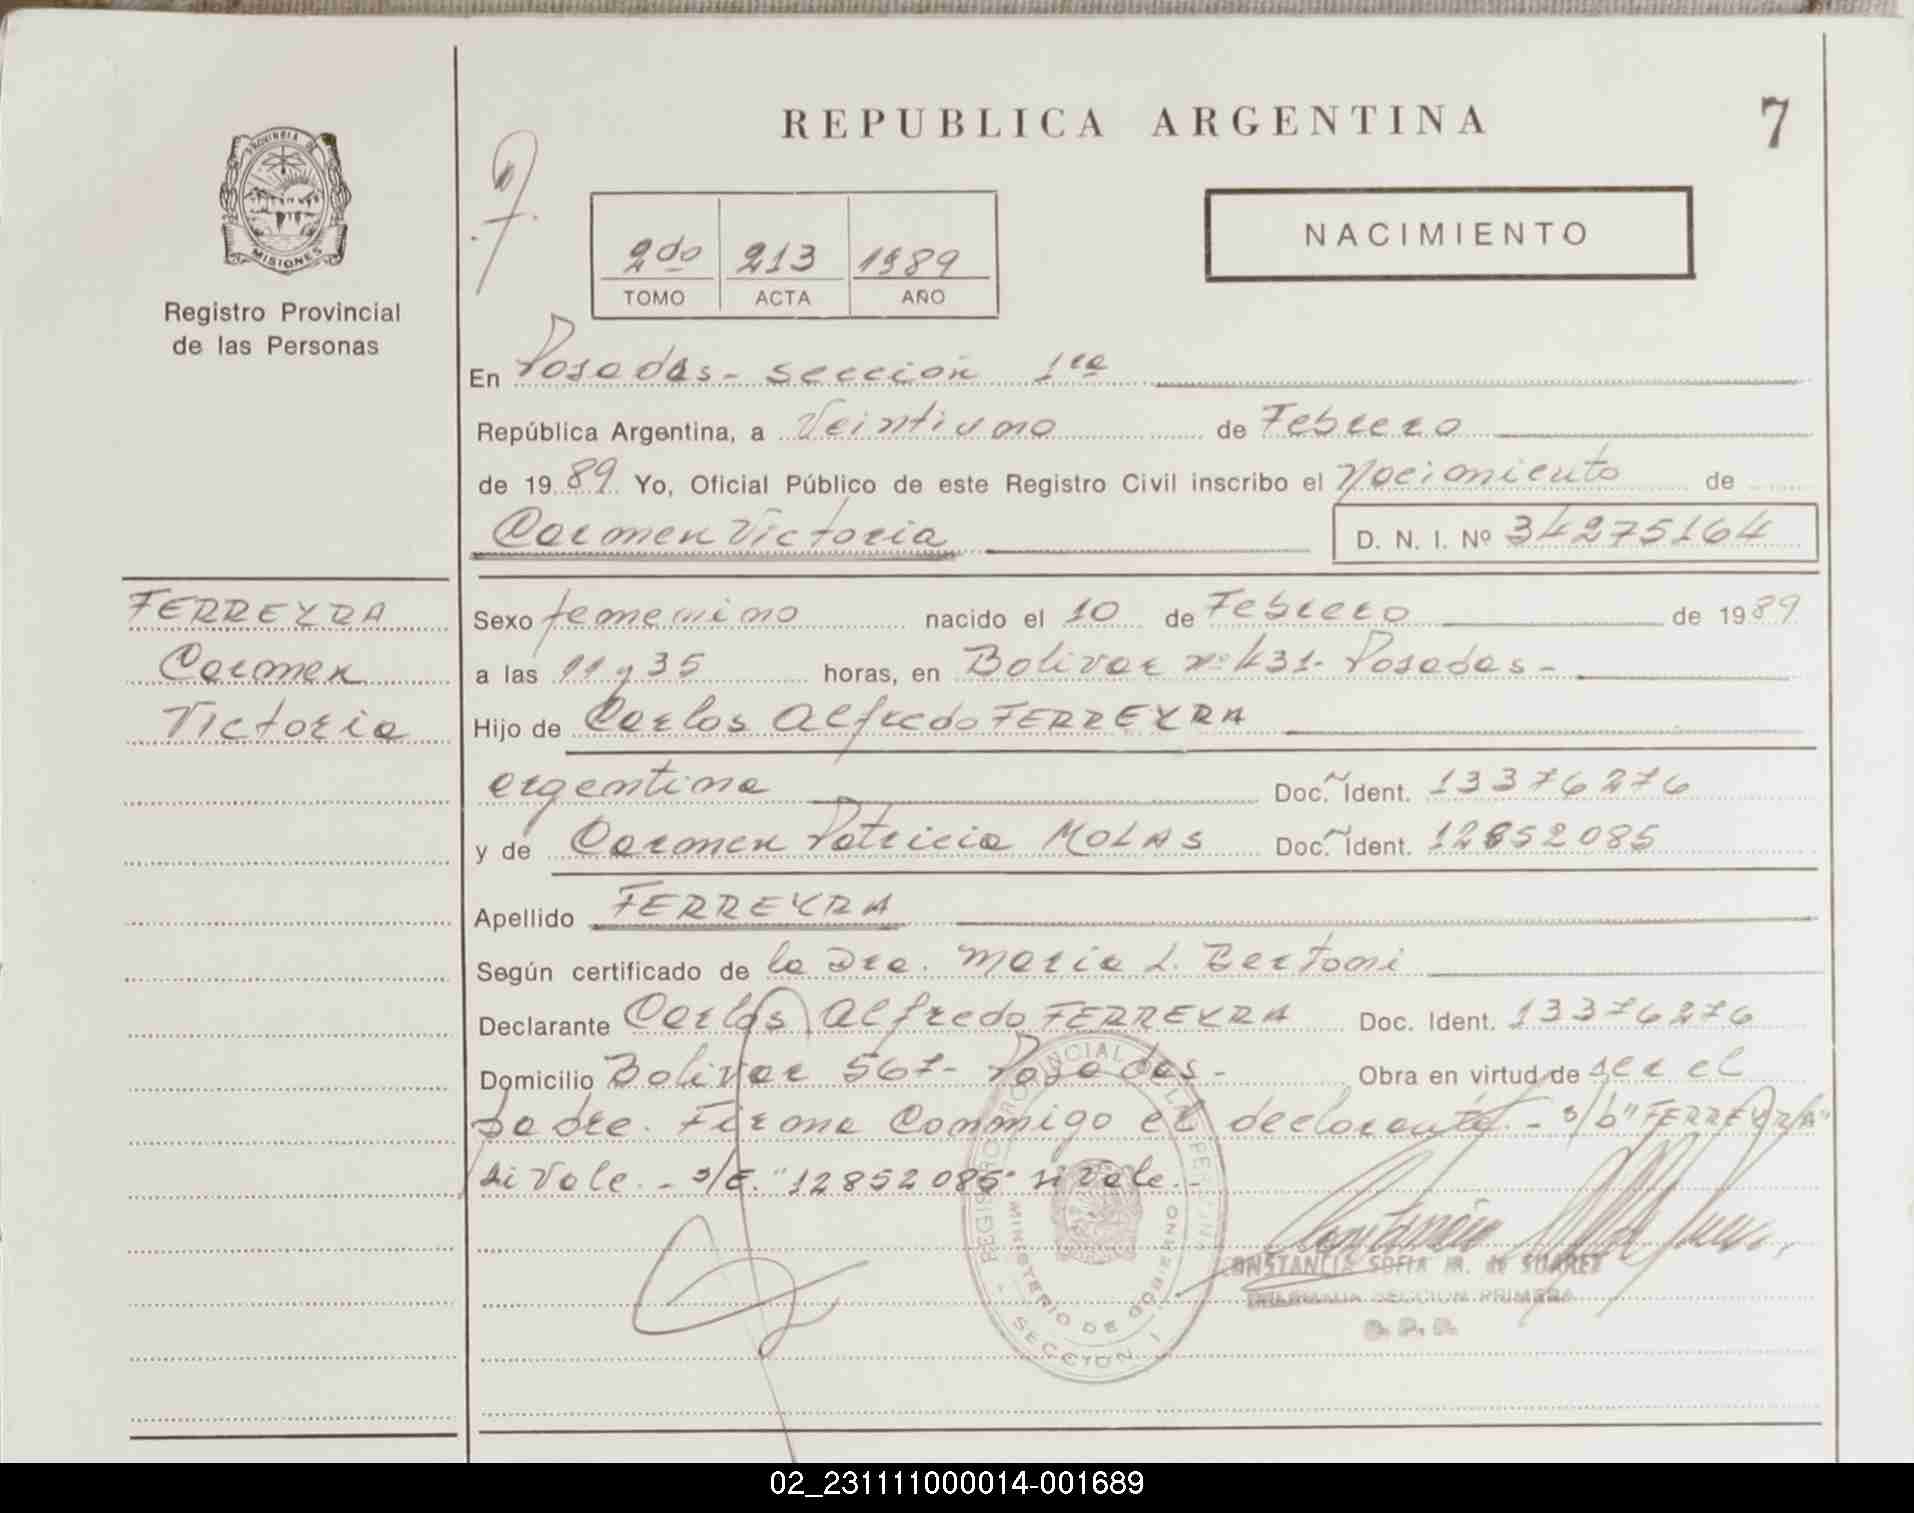 REPUBLICA ARGENTINA
7
PROVINCIA DE
MISIONES
Registro Provincial
de las Personas
NACIMIENTO
2do 213 1989
TOMO ACTA AÑO
En Posadas - sección 1ra
República Argentina, a Veintiuno de Febrero
de 1989 Yo, Oficial Público de este Registro Civil inscribo el Nacimiento de
Carmen Victoria D. N. I. Nº 34275164
FERREYRA
Carmen
Victoria
Sexo femenino nacido el 10 de Febrero de 1989
a las 11 y 35 horas, en Bolivar nº 431 - Posadas -
Hijo de Carlos Alfredo FERREYRA
argentina Doc. Ident. 13376276
y de Carmen Patricia MOLAS Doc. Ident. 12852085
Apellido FERREYRA
Según certificado de la Dra. Maria L. Bertoni
Declarante Carlos Alfredo FERREYRA Doc. Ident. 13376276
Domicilio Bolivar 567 - Posadas - Obra en virtud de ser el
padre. Firma Conmigo el declarante. - s/b "FERREYRA"
si Vale. - s/E. "12852085" si vale. -
REGISTRO PROVINCIAL DE LAS PERSONAS
MINISTERIO DE GOBIERNO
SECCION 1
CONSTANCIA SOFIA M. de SUAREZ
SECCION PRIMERA
R. P. P.
02_231111000014-001689